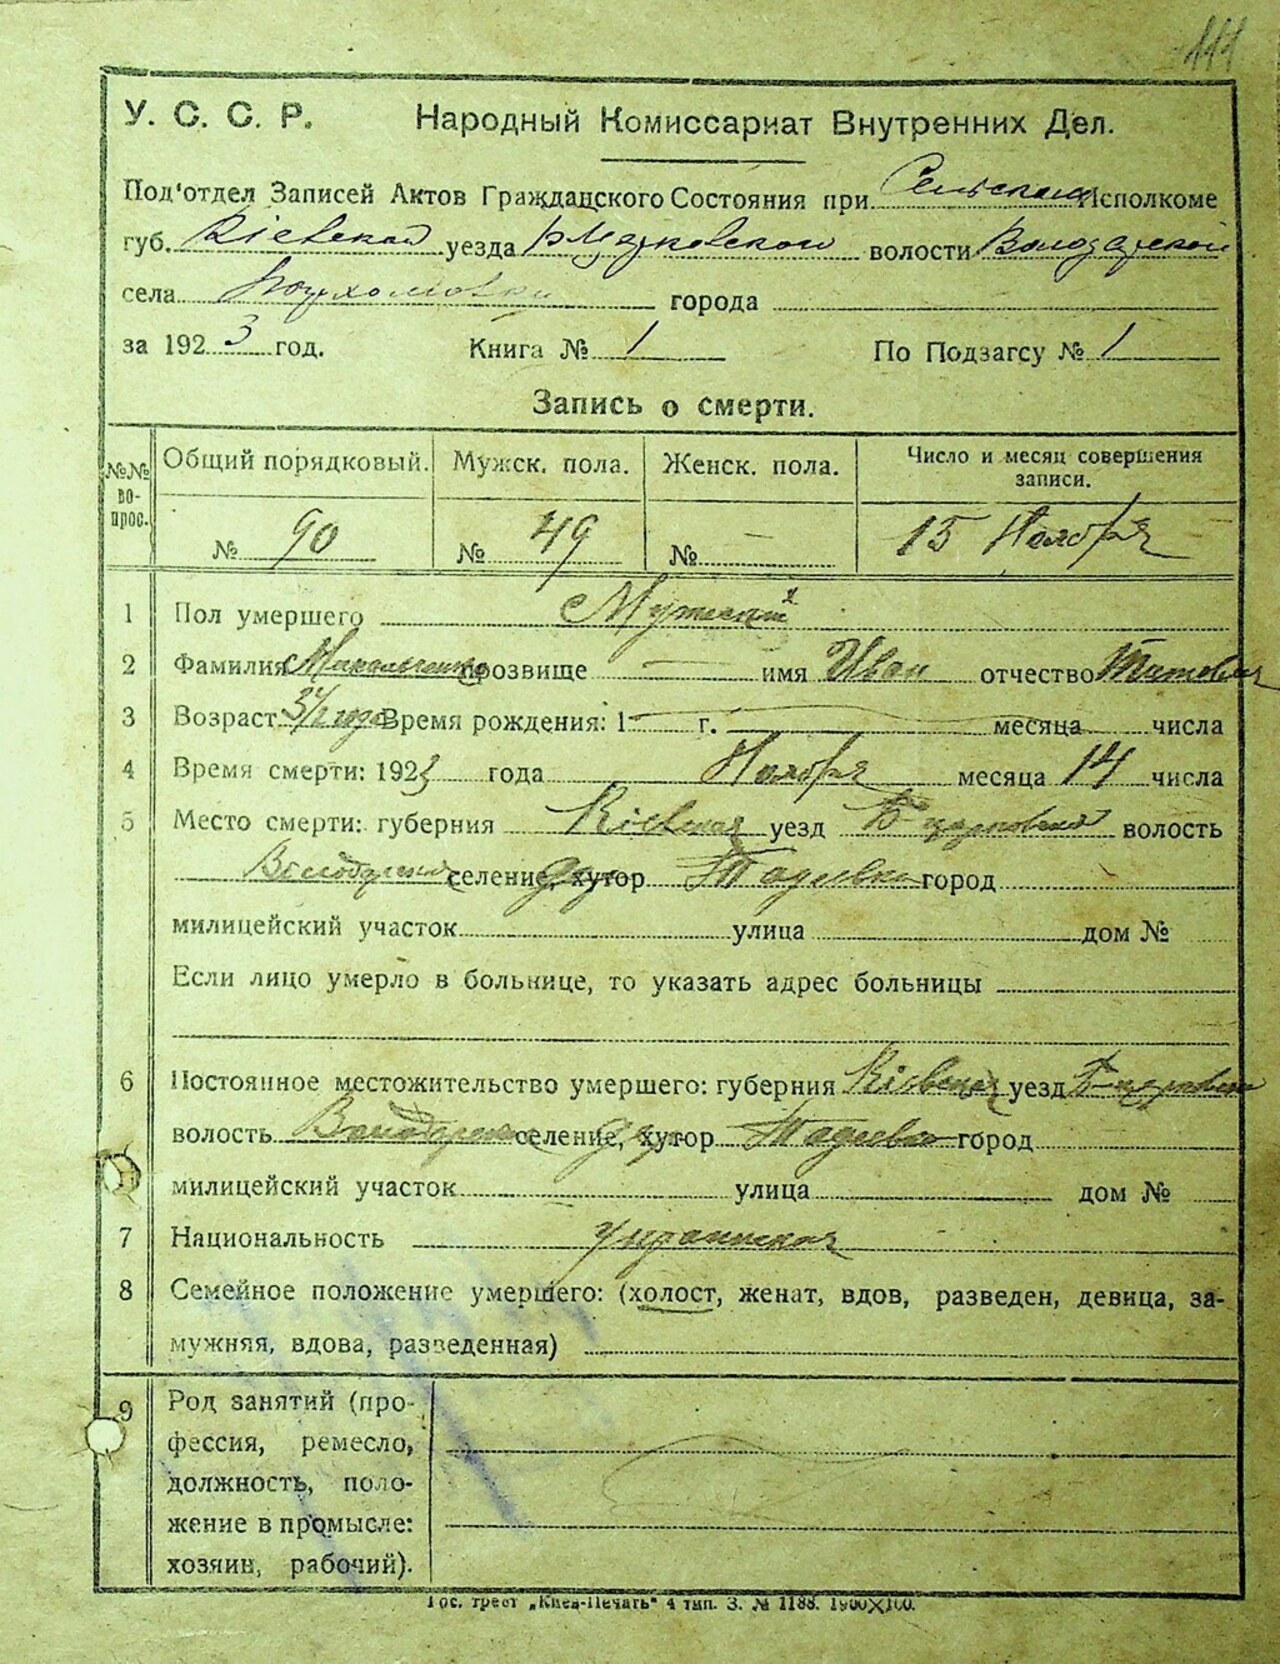 111
У. С. С. Р. Народный Комиссариат Внутренних Дел.
Под'отдел Записей Актов Гражданского Состояния при Сельском Исполкоме
губ. Кіевской уезда волости Володарской
села города
за 1923 год. Книга № 1 По Подзагсу № 1
Запись о смерти.
№№ вопрос. Общий порядковый. Мужск. пола. Женск. пола. Число и месяц совершения записи.
№ 90 № 49 № — 15 Ноября
1 Пол умершего Мужской
2 Фамилия прозвище — имя Иван отчество Титович
3 Возраст 3½ года Время рождения: 1 г. месяца числа
4 Время смерти: 1923 года Ноября месяца 14 числа
5 Место смерти: губерния Кіевская уезд Б церковский волость
Володарская селение, хутор Тадиевка город
милицейский участок улица дом №
Если лицо умерло в больнице, то указать адрес больницы
6 Постоянное местожительство умершего: губерния Кіевская уезд Б-церковский
волость Володарская селение, хутор Тадиевка город
милицейский участок улица дом №
7 Национальность
8 Семейное положение умершего: (холост, женат, вдов, разведен, девица, за-
мужняя, вдова, разведенная)
9 Род занятий (про-
фессия, ремесло,
должность, поло-
жение в промысле:
хозяин, рабочий).
Гос. трест „Киев-Печать" 4 тип. З. № 1188. 1900Х100.